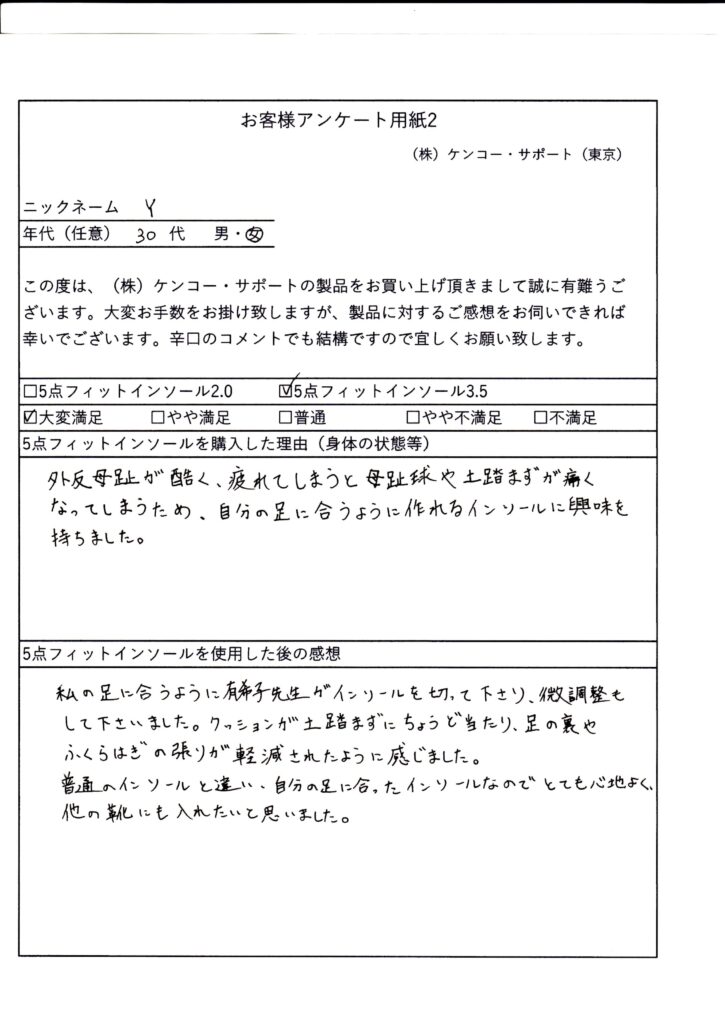 お客様アンケート用紙2
（株）ケンコー・サポート（東京）
ニックネーム Y
年代（任意） 30 代 男・女
この度は、（株）ケンコー・サポートの製品をお買い上げ頂きまして誠に有難うご
ざいます。大変お手数をお掛け致しますが、製品に対するご感想をお伺いできれば
幸いでございます。辛口のコメントでも結構ですので宜しくお願い致します。
□5点フィットインソール2.0 ☑5点フィットインソール3.5
☑大変満足 □やや満足 □普通 □やや不満足 □不満足
5点フィットインソールを購入した理由（身体の状態等）
外反母趾が酷く、疲れてしまうと母趾球や土踏まずが痛く
なってしまうため、自分の足に合うように作れるインソールに興味を
持ちました。
5点フィットインソールを使用した後の感想
私の足に合うように有希子先生がインソールを切って下さり、微調整も
して下さいました。クッションが土踏まずにちょうど当たり、足の裏や
ふくらはぎの張りが軽減されたように感じました。
普通のインソールと違い、自分の足に合ったインソールなのでとても心地よく、
他の靴にも入れたいと思いました。